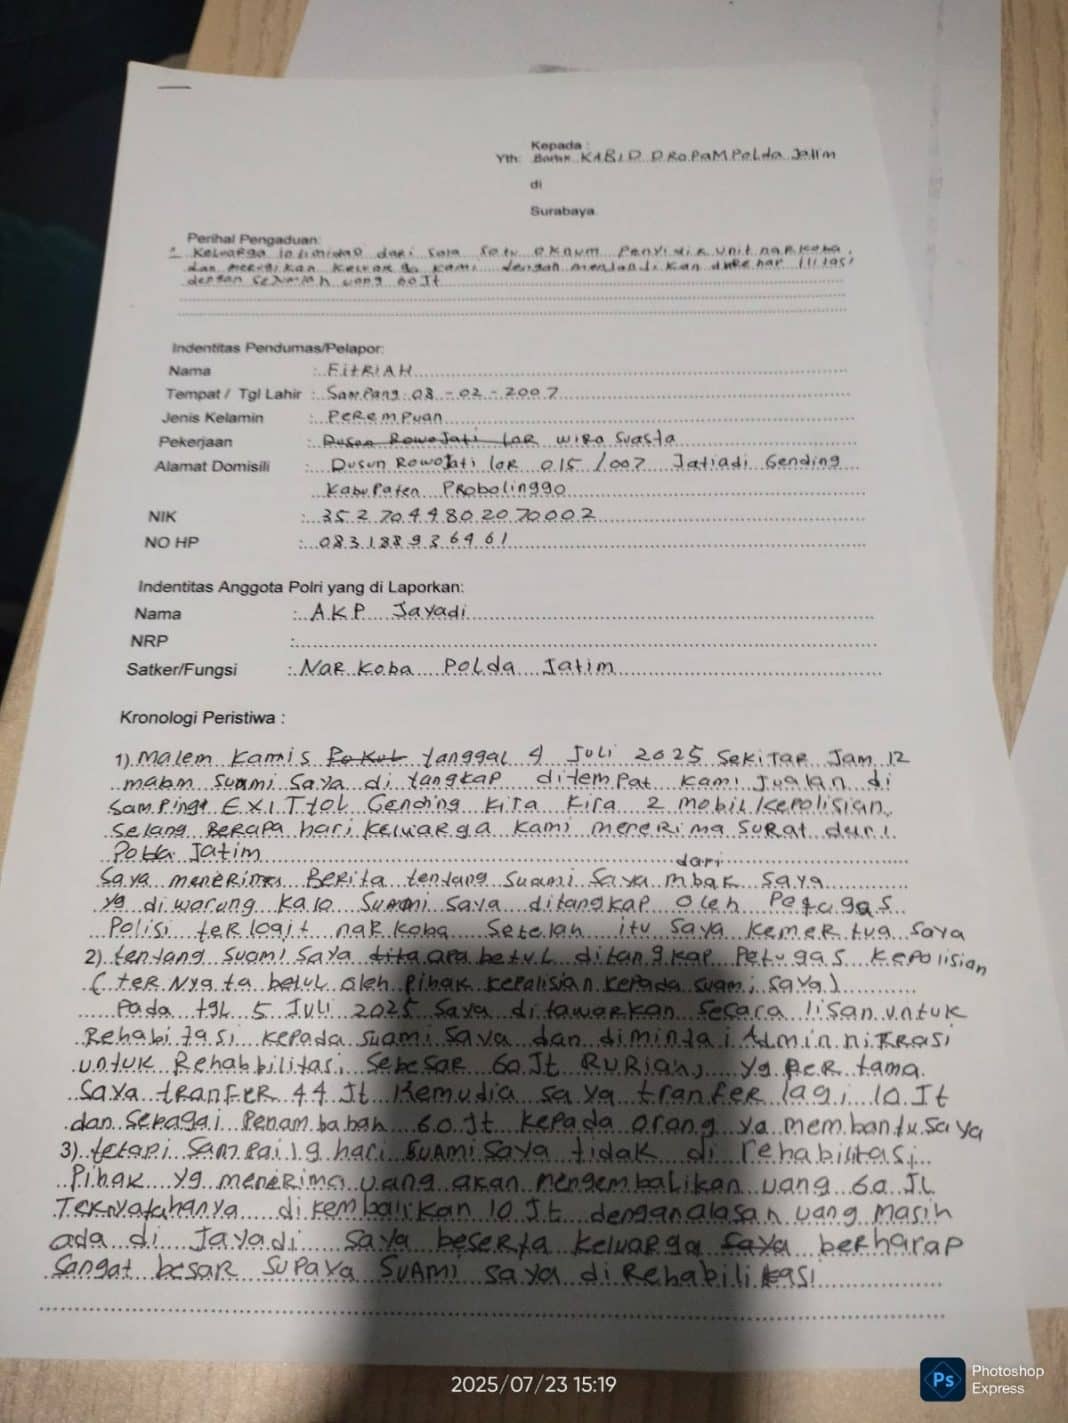 Kepada :
Yth: Bapak KABID PROPAM Polda Jatim
di
Surabaya.
Perihal Pengaduan:
Keluarga intimidasi dari sala satu oknum Penyidik unit narkoba,
dan merugikan keluarga kami dengan menjandikan direhap litasi
dengan sejumlah uang 60 Jt
Indentitas Pendumas/Pelapor:
Nama : FitRIAH
Tempat / Tgl Lahir : Sampang 08 - 02 - 2007
Jenis Kelamin : PeRemPuan
Pekerjaan : Dusun RowoJati loR wiRa Suasta
Alamat Domisili : Dusun RowoJati loR 015 / 007 Jatiadi Gending
KabuPaten PRobolinggo
NIK : 3527044802070002
NO HP : 083188936461
Indentitas Anggota Polri yang di Laporkan:
Nama : AKP Jayadi
NRP :
Satker/Fungsi : NaRkoba Polda Jatim
Kronologi Peristiwa :
1) Malem Kamis tanggal 4 Juli 2025 SekiTaR Jam 12
malam Suami Saya di tangkap ditemPat kami Jualan di
SamPing EXIT Tol Gending kiTa kira 2 mobil/kepolisian,
Selang BeRapa hari keluaRga kami meneRima SuRat dari
Polda Jatim
dari
Saya menerima BeRita tentang Suami Saya mbak Saya
yg di warung kalo Suami Saya ditangkap oleh Petugas
Polisi teRlogit naRkoba Setelah itu Saya kemeRtua Saya
2) tentang Suami Saya apa betul ditangkap Petugas kepolisian
( teRNyata betul oleh Pihak kepalisian kepada suami saya)
Pada tgl 5 Juli 2025 Saya ditawarkan Secara lisan untuk
Rehabitasi kepada suami saya dan dimintai AdminniTRasi
untuk Rehabbilitasi Sebesar 60 Jt RuRiah, yg PeRtama
Saya tRanFeR 44 Jt kemudia saya tranfeR lagi 10 Jt
dan Sebagai Penambahan 6.0 Jt kepada orang yg membantu Saya
3) tetapi SamPai 19 hari Suami Saya tidak di rehabilitasi,
Pihak yg menerima uang akan mengembalikan uang 60 Jt
TeRnyatahanya dikembalikan 10 Jt dengan alasan uang masih
ada di Jayadi Saya beserta keluaRga saya berharap
Sangat besaR SuPaya SuAMi saya di Rehabilitasi
2025/07/23 15:19
Ps Photoshop
Express